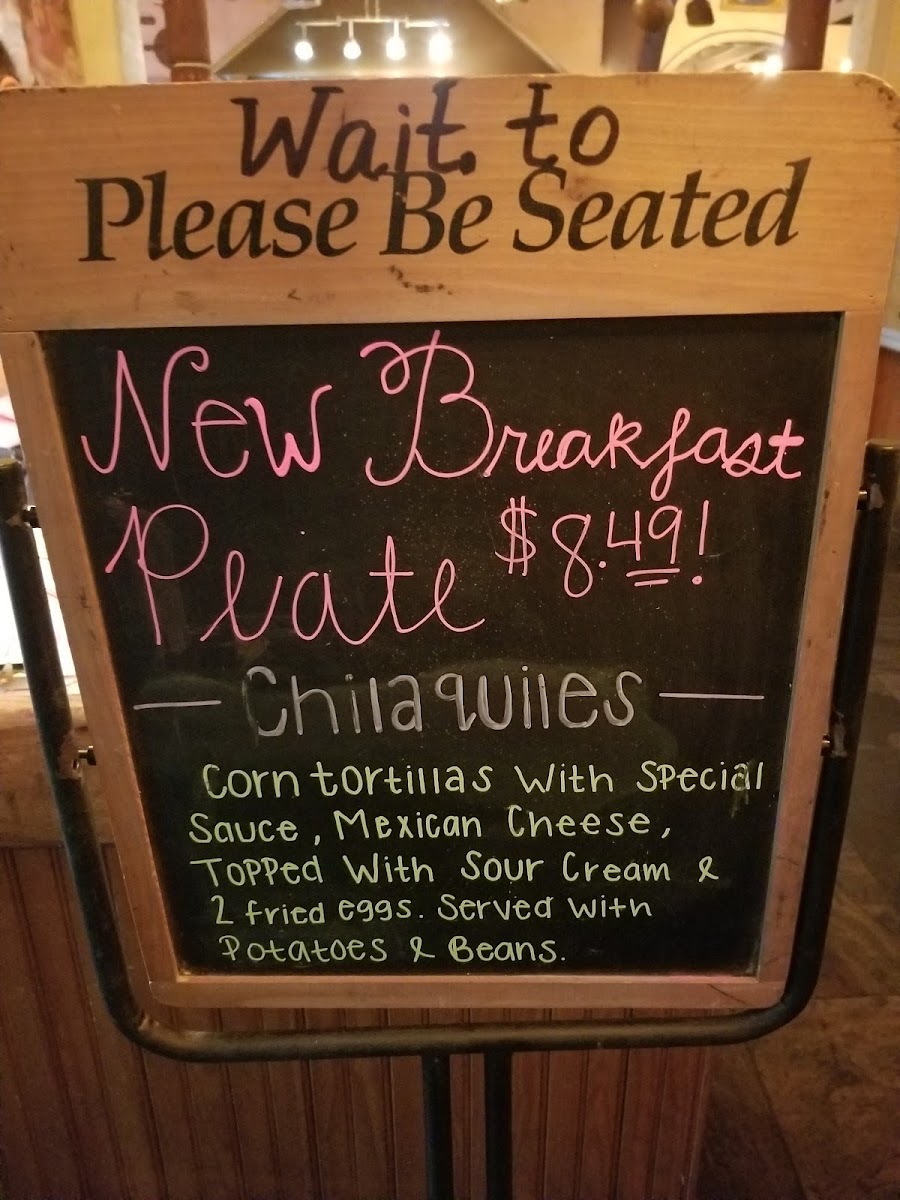 Wait to
Please Be Seated
New Breakfast
Plate $8.49!
— Chilaquiles —
Corn tortillas with Special
Sauce, Mexican Cheese,
Topped With Sour Cream &
2 fried eggs. Served with
Potatoes & Beans.